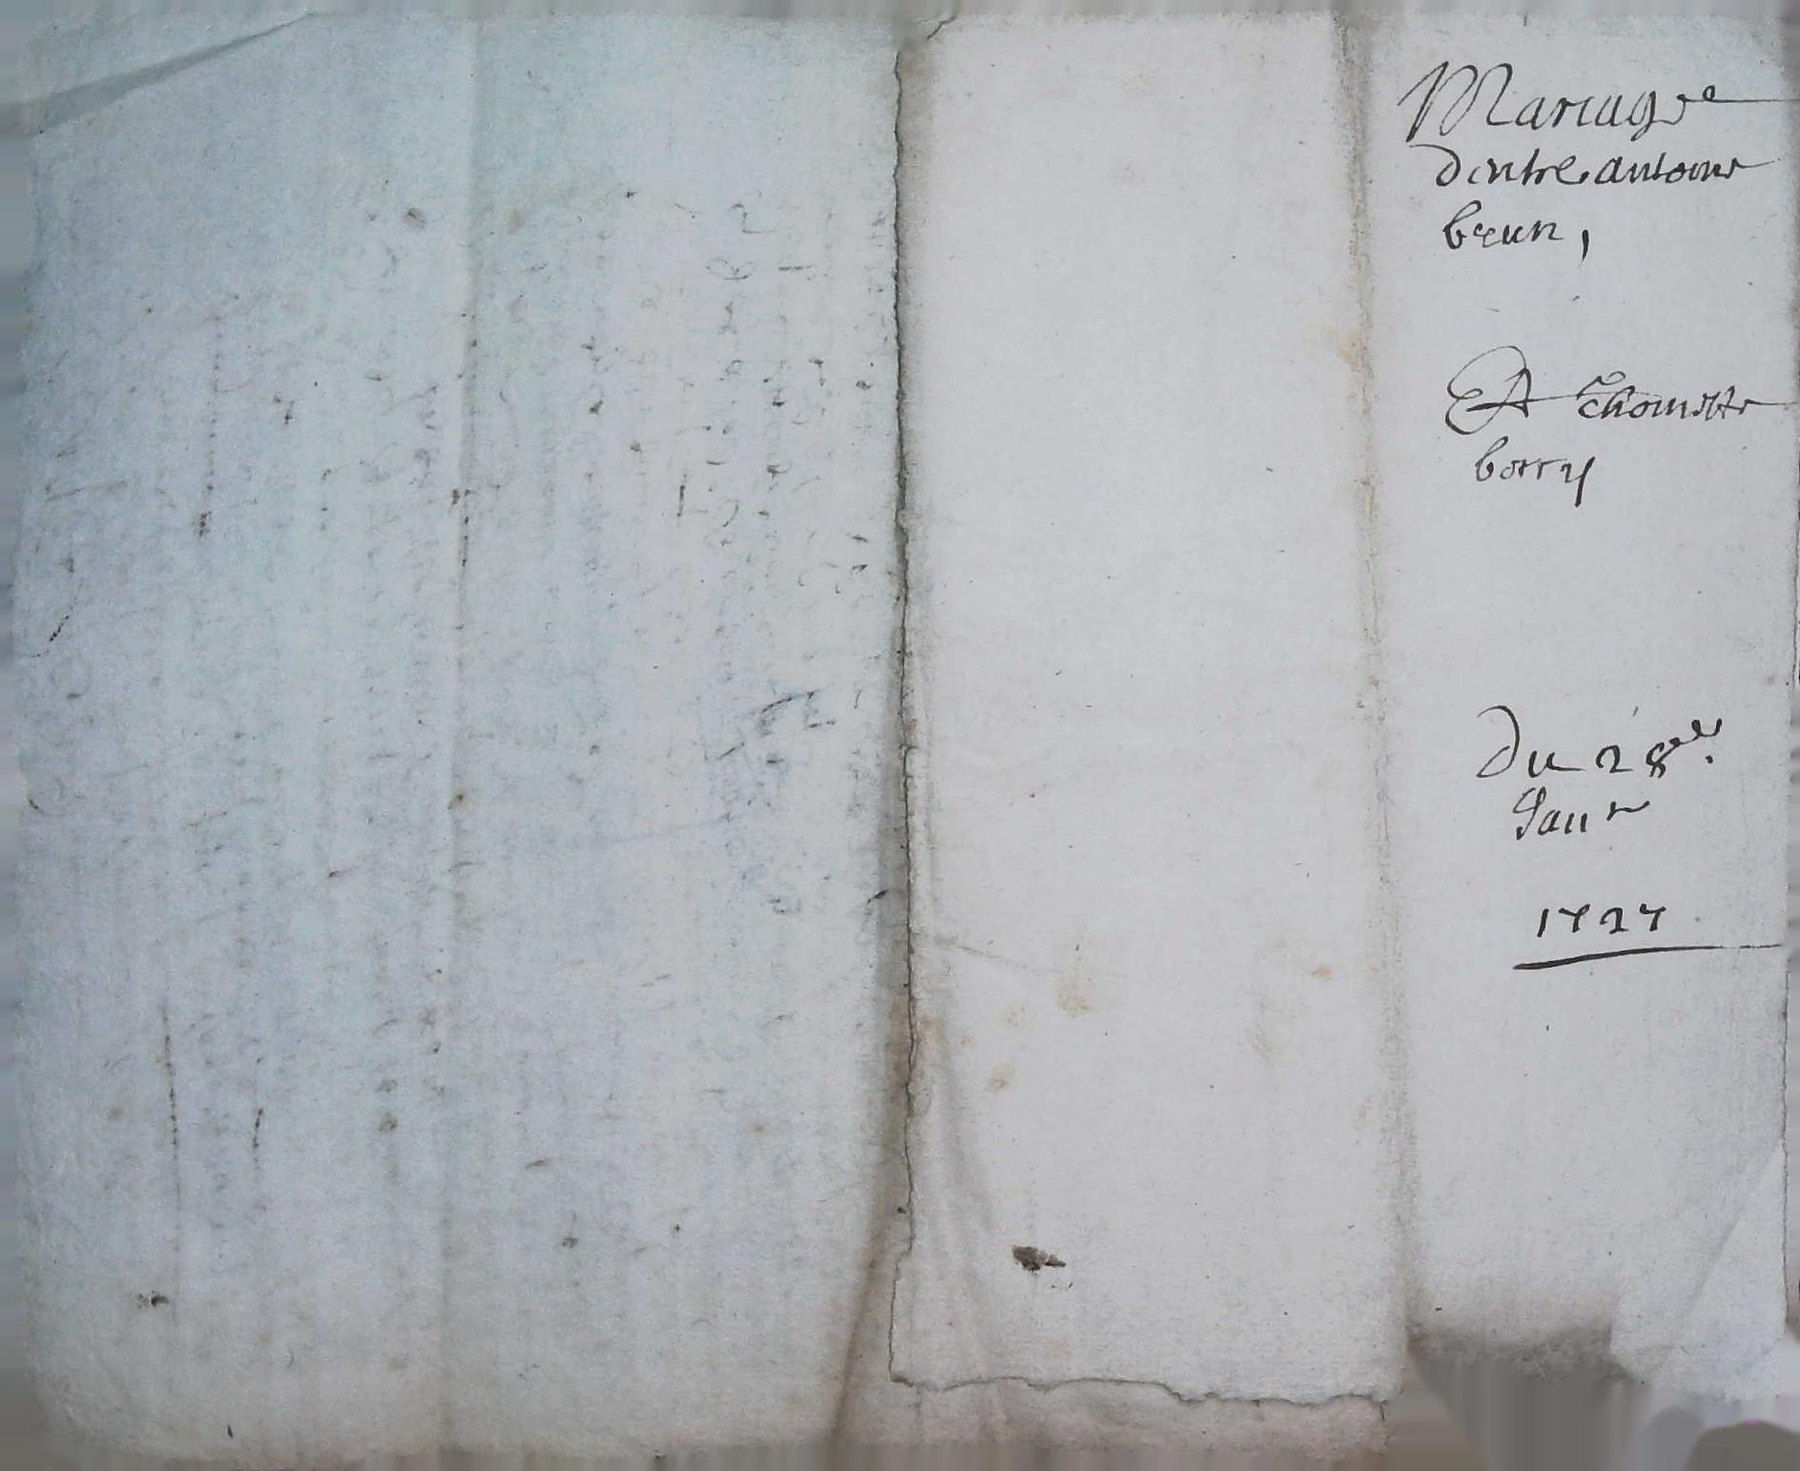 Mariage
dentre antoine
brun,
Et Thomette
borry
Du 28ee.
Janr
1727